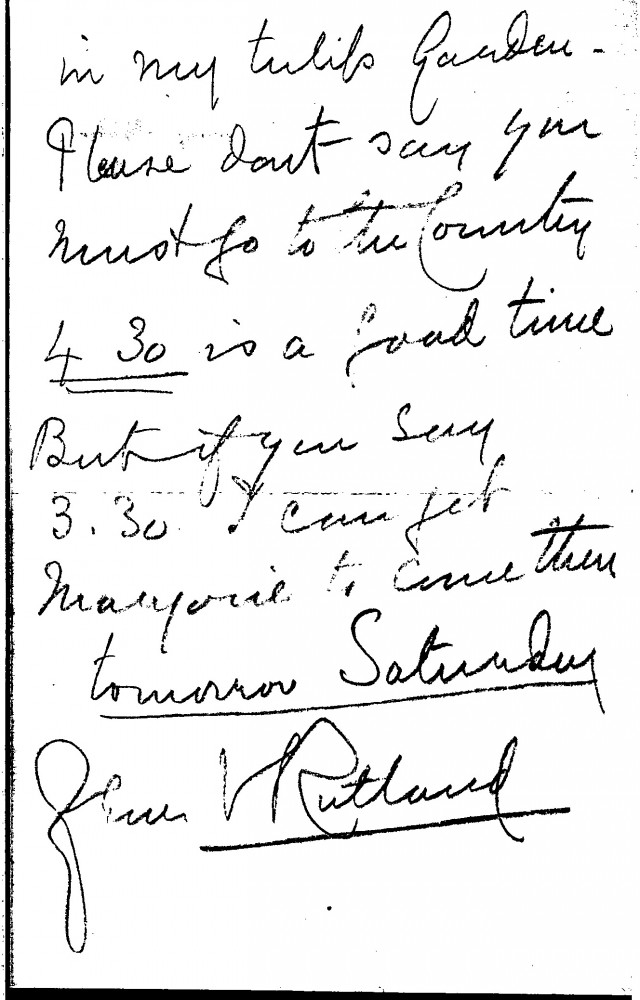 in my tulip Garden -
Please dont say you
must go to the Country
4 30 is a good time
But if you say
3.30 I can get
Marjorie to come then
tomorrow Saturday
V Rutland